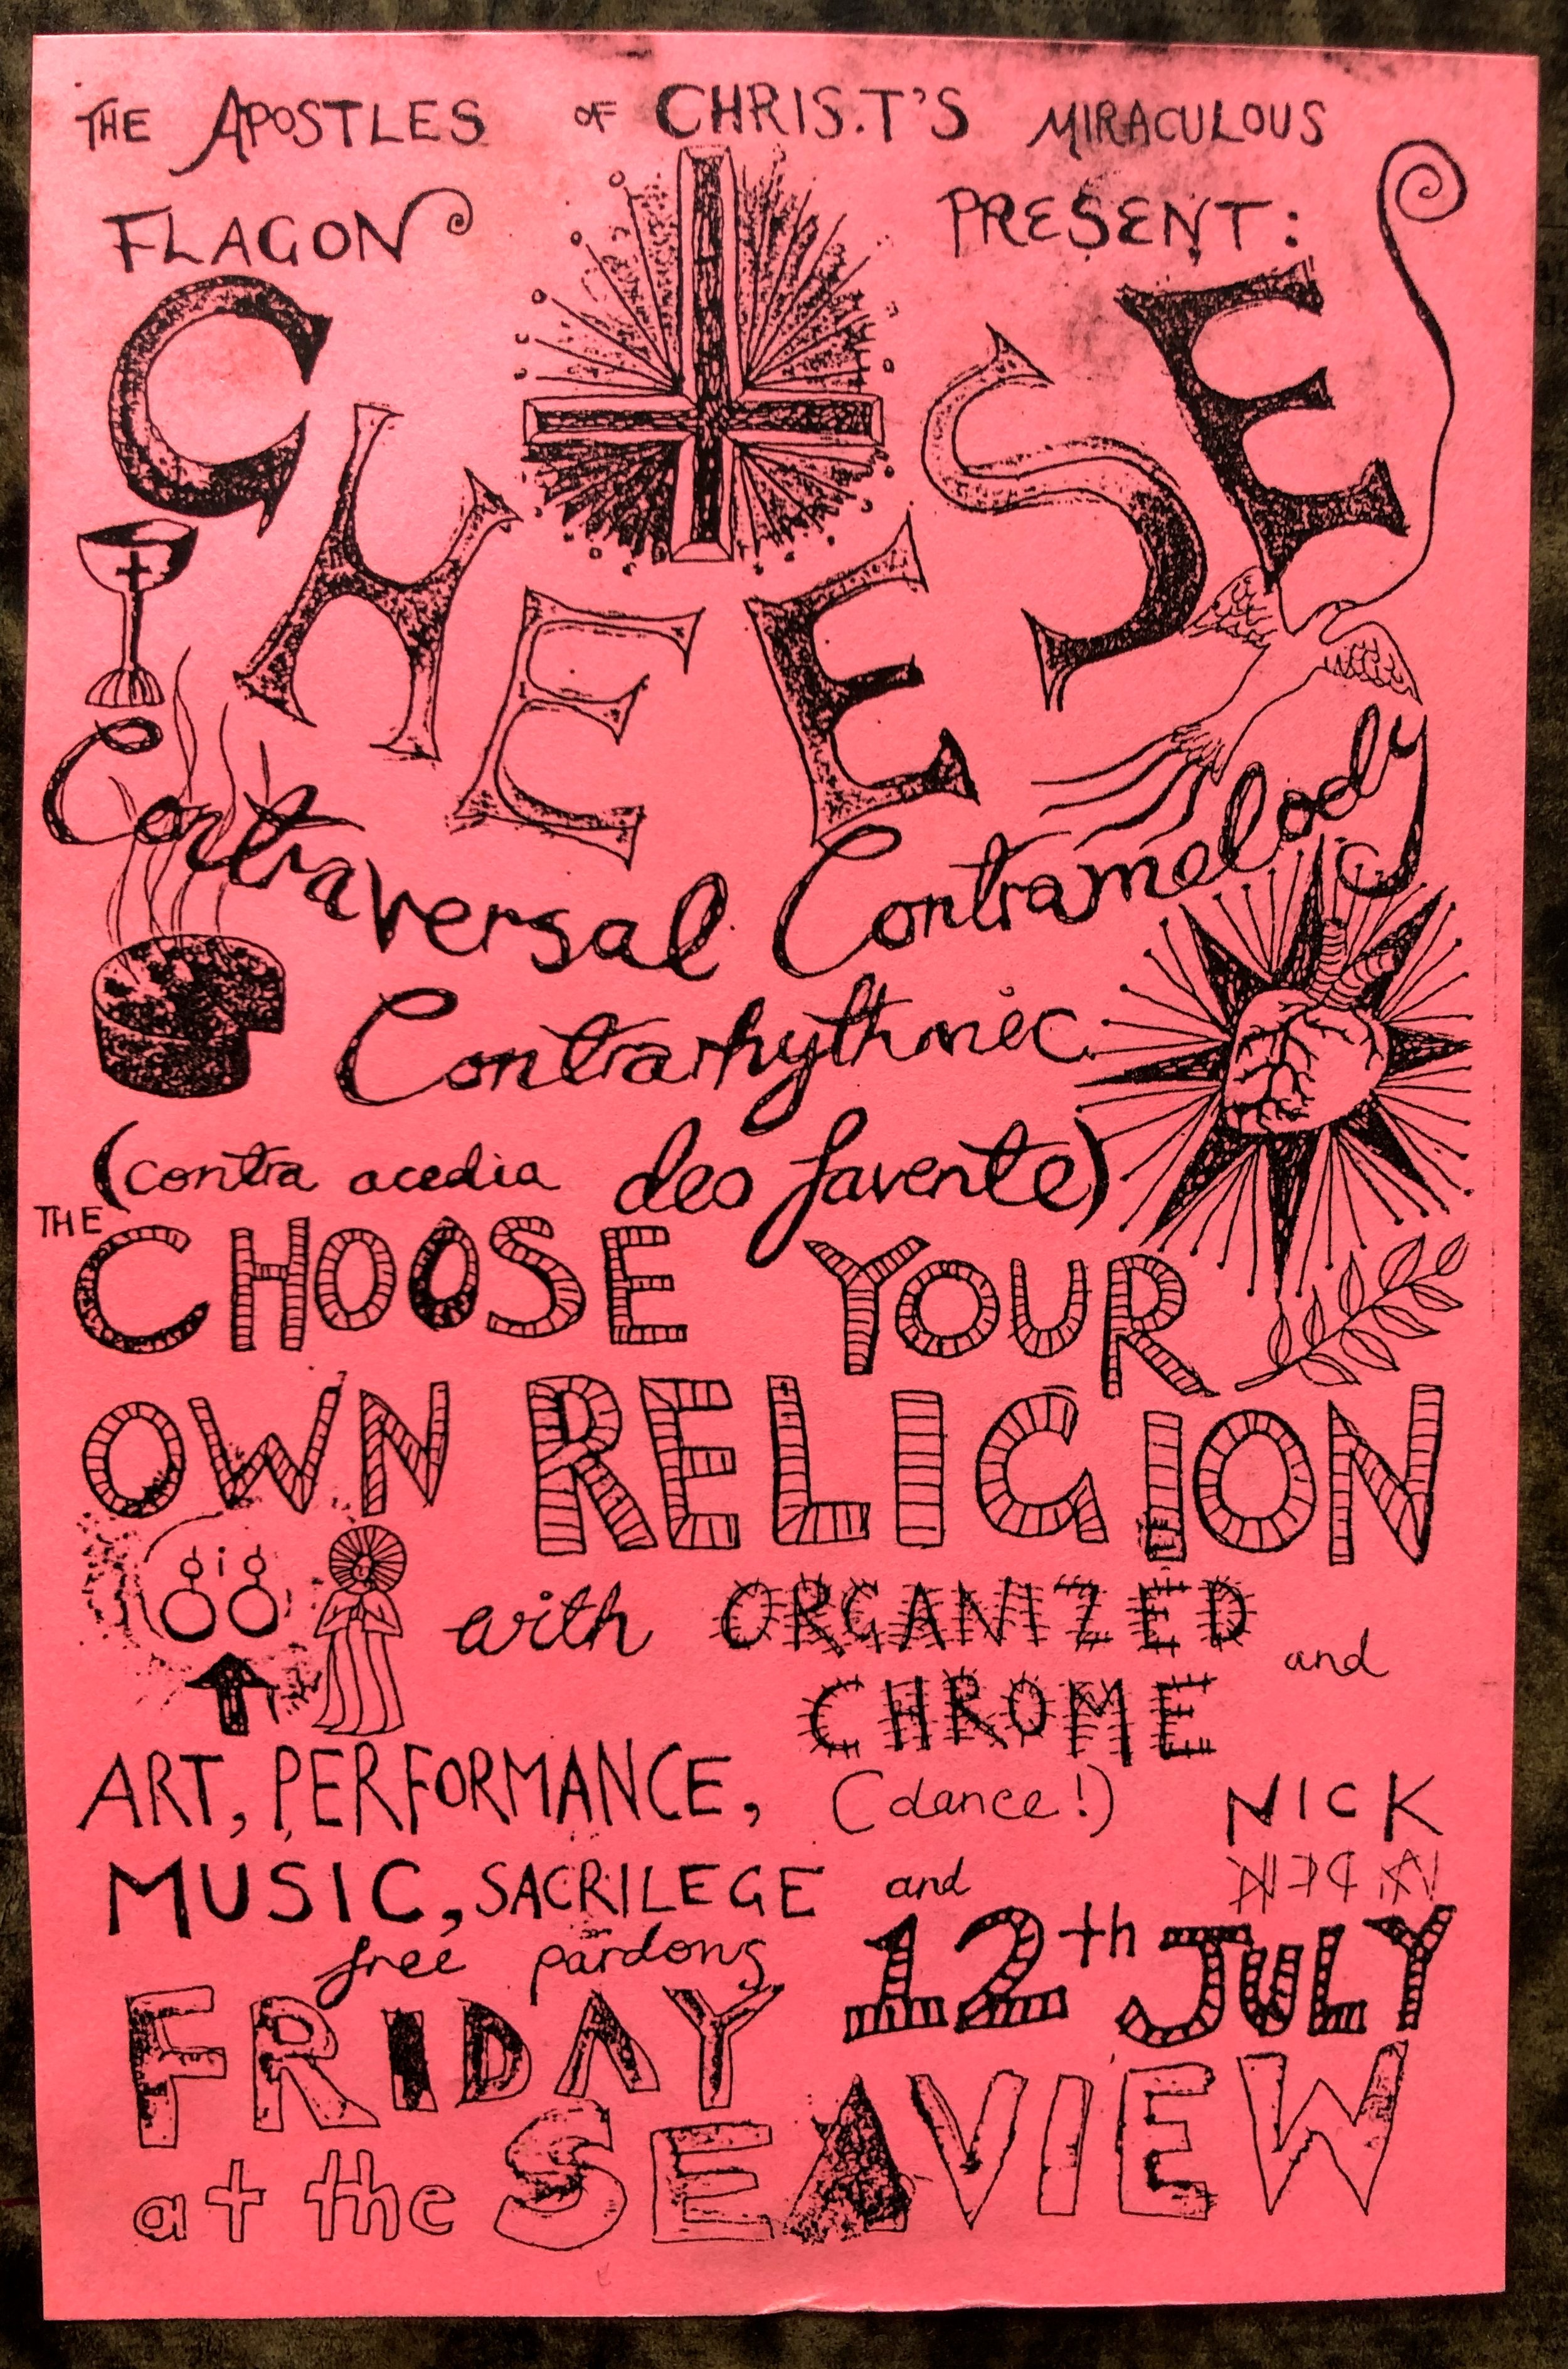 THE APOSTLES OF CHRIS.T'S MIRACULOUS
FLAGON PRESENT:
CHEESE
Contraversal Contramelody
Contrarhythmic
(contra acedia deo favente)
THE CHOOSE YOUR
OWN RELIGION
with ORGANIZED and
CHROME
ART, PERFORMANCE, (dance!) NICK
MUSIC, SACRILEGE and
free pardons 12th JULY
FRIDAY
at the SEAVIEW